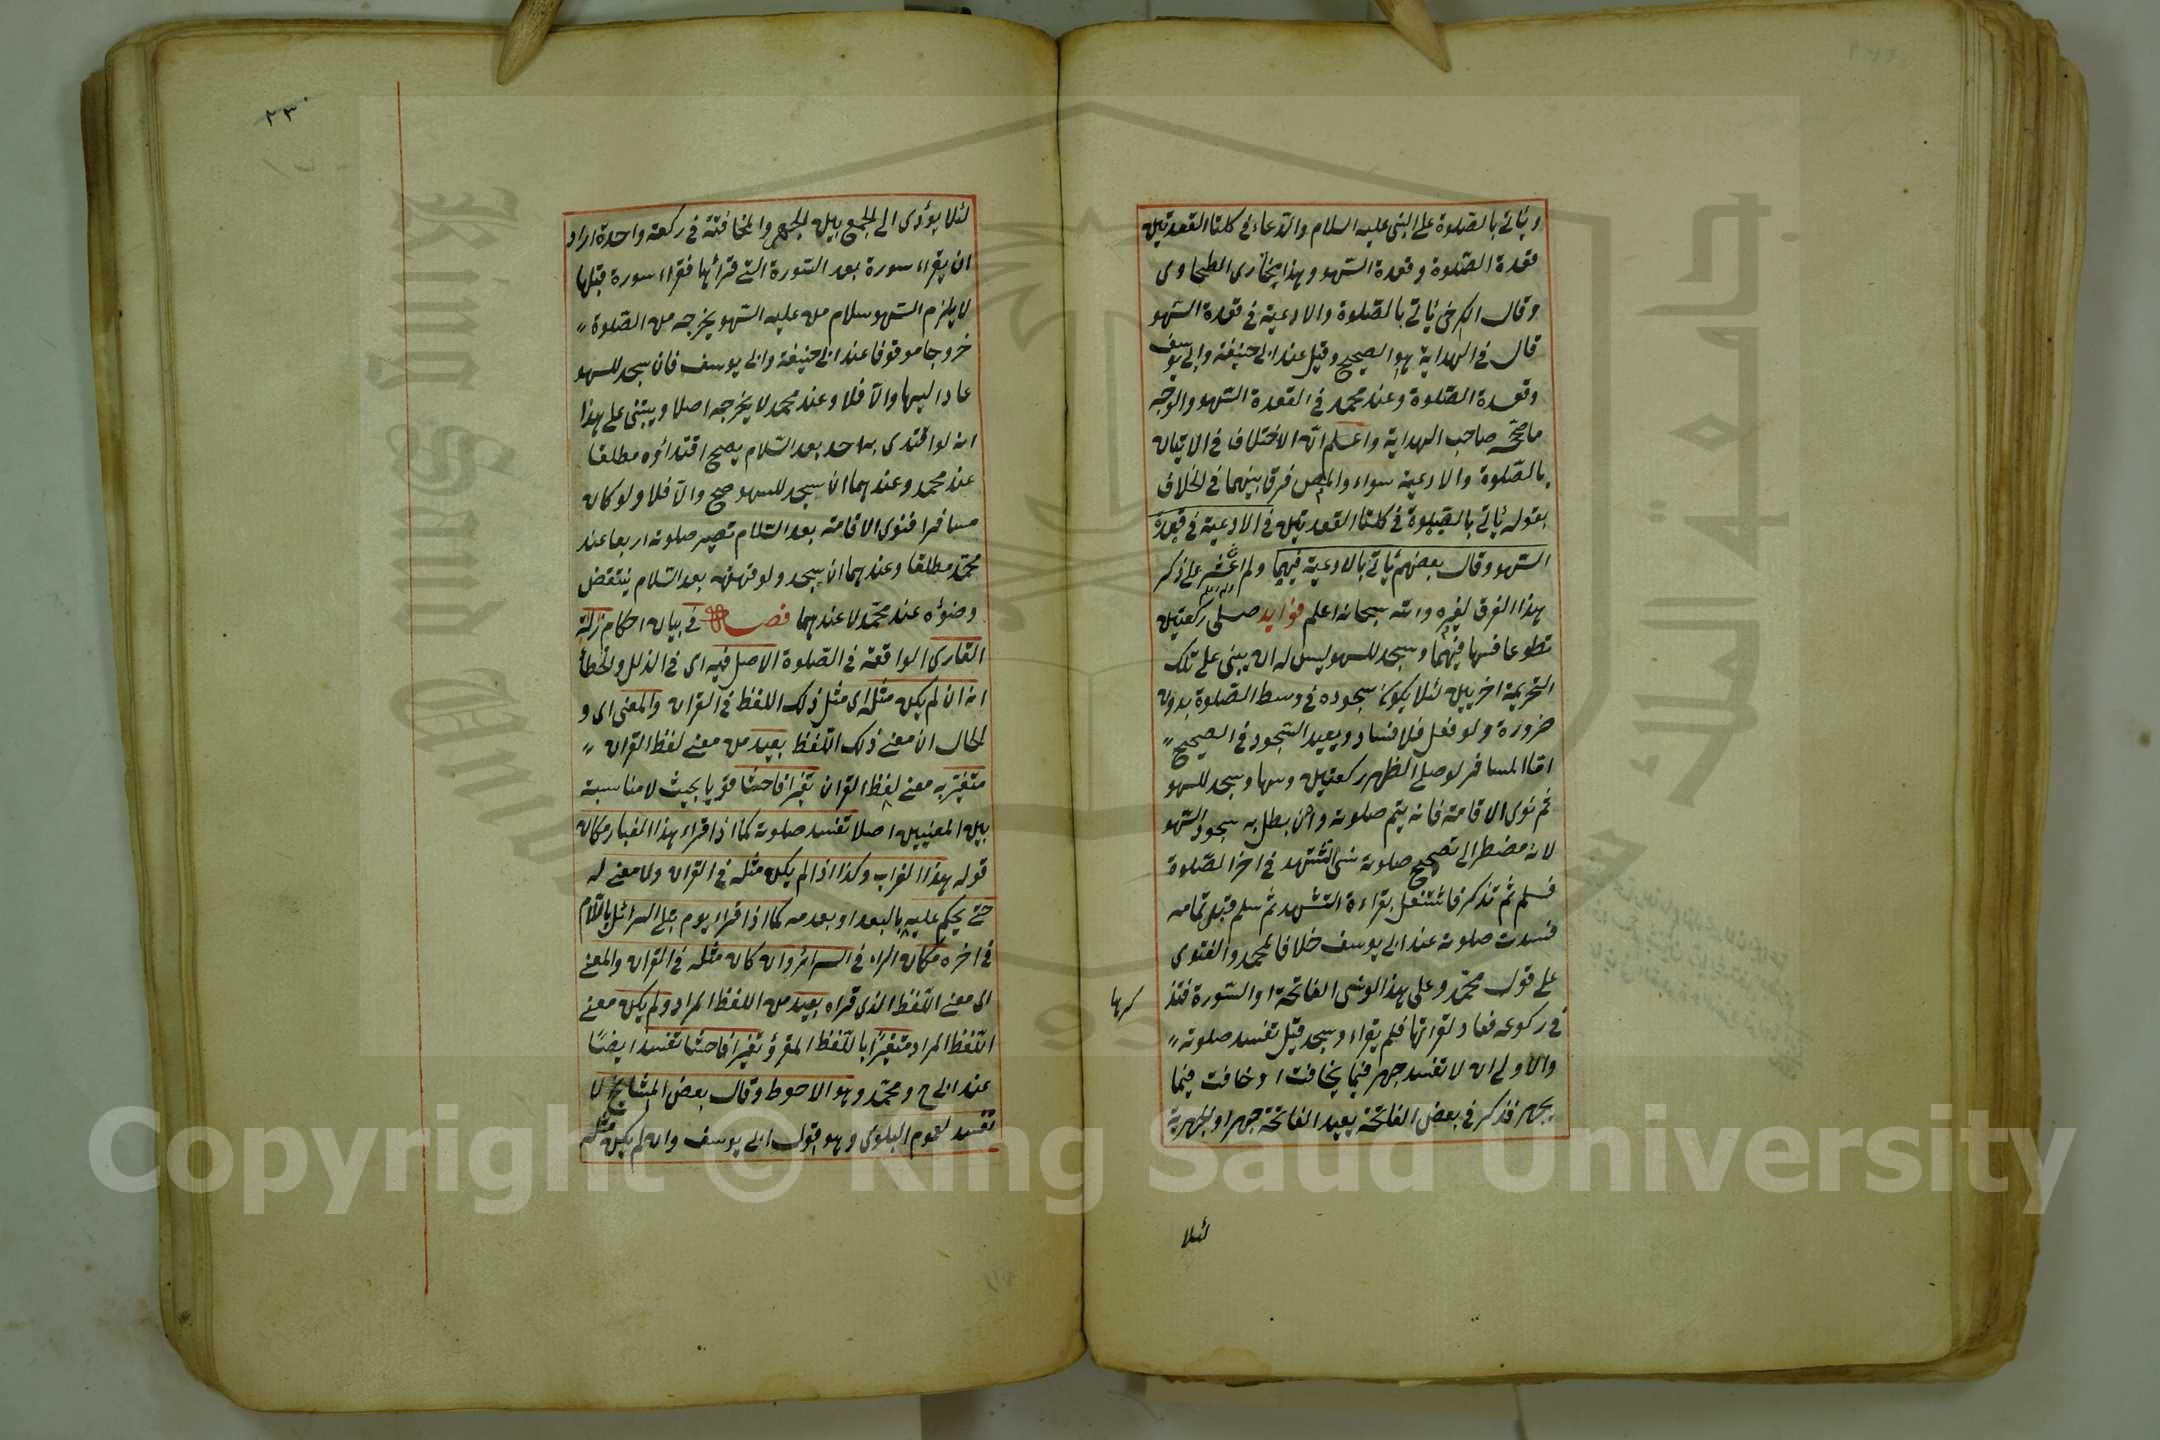 ويأتي بالصلوة على النبي عليه السلام والدعاء في كلتا القعدتين
قعدة الصلوة وقعدة السهو وهذا مختار الطحاوي
وقال الكرخي يأتي بالصلوة والادعية في قعدة السهو
قال في الهداية هو الصحيح وقيل عند ابي حنيفة وابي يوسف
وقعدة الصلوة وعند محمد في القعدة السهو والوجه
ما صححه صاحب الهداية واعلم ان الاختلاف في الاتيان
بالصلوة والادعية سواء والمص فرق بينهما في الخلاف
بقوله يأتي بالصلوة في كلتا القعدتين في الادعية في قعدة
السهو وقال بعضهم يأتي بالادعية فيهما ولم اعثر على ذكر
هذا الفرق لغيره والله سبحانه اعلم فوايد صلى ركعتين
تطوعا فسها فيهما وسجد للسهو ليس له ان يبني على تلك
التحريمة اخريين لئلا يكون سجوده في وسط الصلوة بدون
ضرورة ولو فعل فلا فساد ويعيد السجود في الصحيح
اما المسافر لو صلى الظهر ركعتين وسها وسجد للسهو
ثم نوى الاقامة فانه يتم صلوته وان بطل به سجود السهو
لانه مضطر الى تصحيح صلوته نسي التشهد في اخر الصلوة
فسلم ثم تذكر فاشتغل بقراءة التشهد ثم سلم قبل تمامه
فسدت صلوته عند ابي يوسف خلافا لمحمد والفتوى
على قول محمد وعلى هذا لو نسي الفاتحة او السورة فتذ كرها
في ركوعه فعاد لقراتها فلم يقراء وسجد قيل تفسد صلوته
والاولى ان لا تفسد جهر فيما يخافت او خافت فيما
يجهر فذكر في بعض الفاتحة يعيد الفاتحة جهرا والجهرية
لئلا
٢٣٠
لئلا يؤدى الى الجمع بين الجهر والمخافتة في ركعة واحدة اراد
ان يقراء سورة بعد السورة التي قرائها فقراء سورة قبلها
لا يلزم السهو سلام من عليه السهو يخرجه من الصلوة
خروجا موقوفا عند ابي حنيفة وابي يوسف فان سجد للسهو
عاد اليها والا فلا وعند محمد لا يخرجه اصلا ويبتنى على هذا
انه لو اقتدى به احد بعد السلام يصح اقتداؤه مطلقا
عند محمد وعندهما ان سجد للسهو صح والا فلا ولو كان
مسافرا فنوى الاقامة بعد السلام تصير صلوته اربعا عند
محمد مطلقا وعندهما ان سجد ولو قهقهه بعد السلام ينتقض
وضوؤه عند محمد لا عندهما فصل في بيان احكام زلة
القارى الواقعة في الصلوة الاصل فيه اى في الزلل والخطأ
انه ان لم يكن مثله اى مثل ذلك اللفظ في القران والمعنى اى و
الحال ان معنى ذلك اللفظ بعيد من معنى لفظ القران
متغير به معنى لفظ القران تغيرا فاحشا قويا بحيث لا مناسبة
بين المعنيين اصلا تفسد صلوته كما اذا قراء هذا الغبار مكان
قوله هذا الغراب وكذا اذا لم يكن مثله في القران ولا معنى له
حتى يحكم عليه بالبعد او بعدمه كما اذا قراء يوم تبلى السرائل باللام
في اخره مكان الراء في السرائر وان كان مثله في القران والمعنى
اى معنى اللفظ الذى قراه بعيد من اللفظ المراد ولم يكن معنى
اللفظ المراد متغيرا باللفظ المقرؤ تغيرا فاحشا تفسد ايضا
عند ابي ح ومحمد وهو الاحوط وقال بعض المشايخ لا
تفسد لعموم البلوى وهو قول ابي يوسف وان لم يكن مثله
Copyright © King Saud University